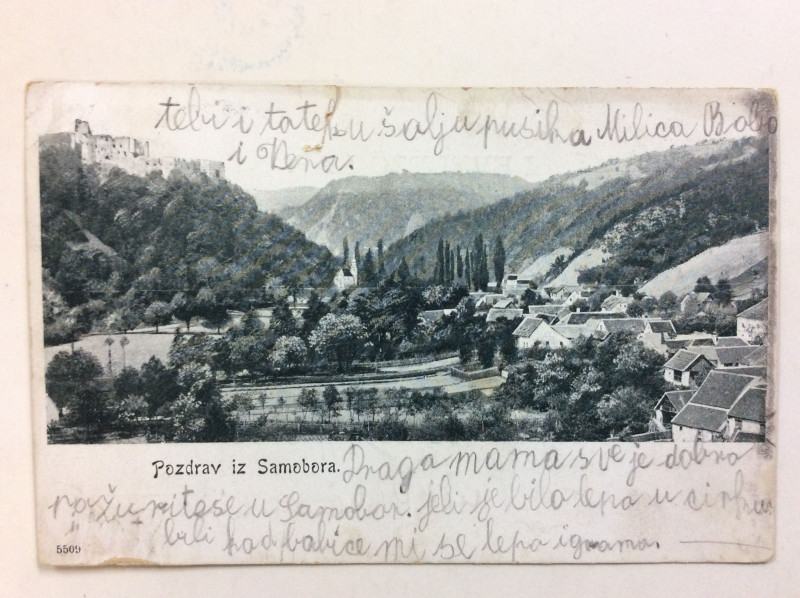 tebi i tateku šalju pusika Milica Bobo
i Vera.
Pozdrav iz Samobora.
Draga mama sve je dobro
požuritese u Samobor. jeli je bilo lepo u cirkusu
bili kod babice mi se lepo igramo.
5509